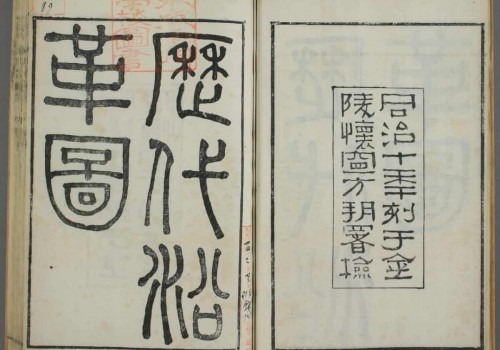 同治十年刻于金
陵懷甯方朔署檢
歷代沿
革圖